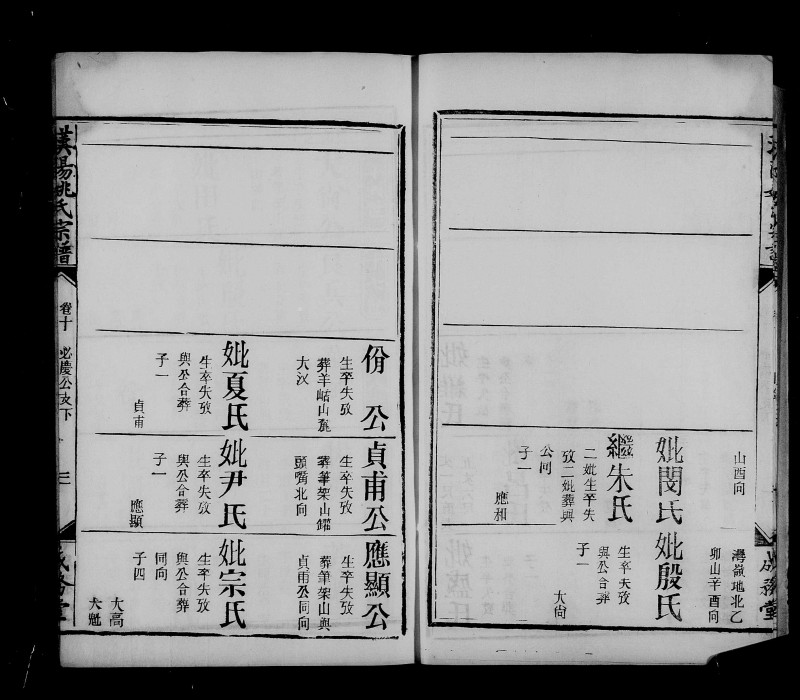 山酉向
妣閔氏
繼朱氏
二妣生卒失
攷二妣葬與
公同
子一
應相
灣嶺地北乙
卯山辛酉向
妣殷氏
生卒失攷
與公合葬
子一
大尚
成務堂
份公
生卒失攷
葬羊岵山麓
大汊
妣夏氏
生卒失攷
與公合葬
子一
貞甫
貞甫公
生卒失攷
葬筆架山鑵
頭嘴北向
妣尹氏
生卒失攷
與公合葬
子一
應顯
應顯公
生卒失攷
葬筆架山與
貞甫公同向
妣宗氏
生卒失攷
與公合葬
同向
子四
大高
大魁
漢陽姚氏宗譜
卷十
必慶公攴下
三